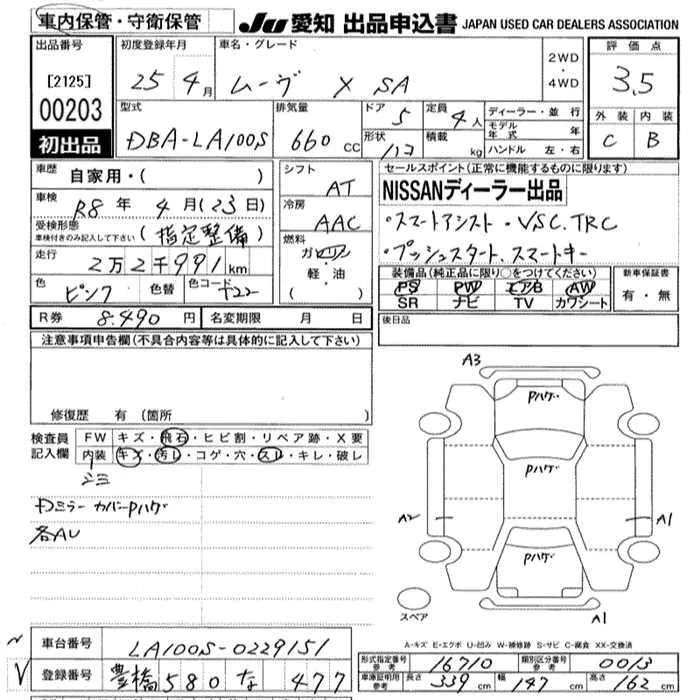 車内保管・守衛保管
JU 愛知 出品申込書 JAPAN USED CAR DEALERS ASSOCIATION
出品番号
[2125]
00203
初出品
初度登録年月
25年4月
車名・グレード
ムーヴ X SA
2WD・4WD
評価点
3.5
外装 内装
C B
型式
DBA-LA100S
排気量
660 cc
ドア 5
形状 ハコ
定員 4人
積載 kg
ディーラー・並行
モデル年式 年
ハンドル 左・右
車歴 自家用・( )
車検 R8年4月(23日)
受検形態
車検付きのみ記入して下さい (指定整備)
走行 2万2千991km
色 ピンク 色替 色コード T22
シフト AT
冷房 AAC
燃料
ガソリン
軽・油
( )
セールスポイント(正常に機能するものに限ります)
NISSANディーラー出品
・スマートアシスト・VSC.TRC
・プッシュスタート.スマートキー
装備品(純正品に限り○をつけてください)
PS PW エアB AW
SR ナビ TV カワシート
新車保証書
有・無
R券 8.490円 名変期限 月 日
後日品
注意事項申告欄(不具合内容等は具体的に記入して下さい)
修復歴 有 (箇所 )
検査員記入欄
FW キズ・飛石・ヒビ割・リペア跡・X要
内装 キズ・汚レ・コゲ・穴・スレ・キレ・破レ
シミ
Dミラーカバー Pハゲ
各AU
A3
Pハゲ
Pハゲ
A2
A1
Pハゲ
A1
スペア
A-キズ E-エクボ U-凹み W-補修跡 S-サビ C-腐食 XX-交換済
車台番号 LA100S-0229151
登録番号 豊橋 580 な 477
形式指定番号参考 16710 類別区分番号参考 0013
車庫証明用参考 長さ 339cm 幅 147cm 高さ 162cm